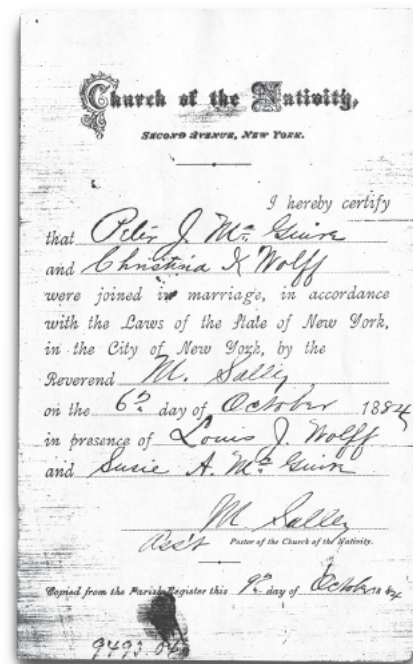 Church of the Nativity,
SECOND AVENUE, NEW YORK.
I hereby certify
that Peter J. Mc Guire
and Christina K Wolff
were joined in marriage, in accordance
with the Laws of the State of New York,
in the City of New York, by the
Reverend M. Salley
on the 6th day of October 1884
in presence of Louis J. Wolff
and Susie A. Mc Guire
M Salley
Ass't Pastor of the Church of the Nativity.
Copied from the Parish Register this 9th day of October 1884